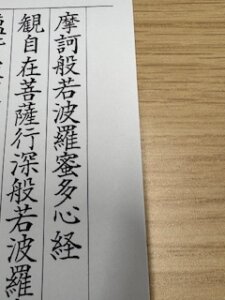 摩訶般若波羅蜜多心経
観自在菩薩行深般若波羅